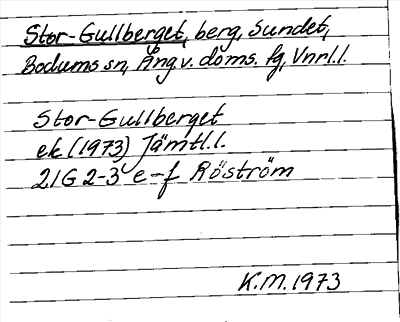 Stor-Gullberget, berg, Sundet,
Bodums sn, Ång v. doms. fg, Vnrl.l.
Stor-Gullberget
ek (1973) Jämtl.l.
21G 2-3 e-f Röström
K.M. 1973